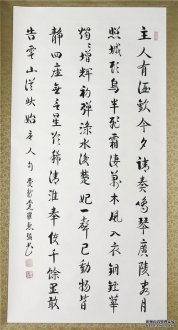 主人有酒歡今夕請奏鳴琴廣陵客月
照城頭烏半飛霜淒萬木風入衣銅鑪華
燭〻增輝初彈淥水後楚妃一聲已動物皆
靜四座無言星欲稀清淮奉使千餘里敢
告雲山從此始 主人句 愛新覺羅